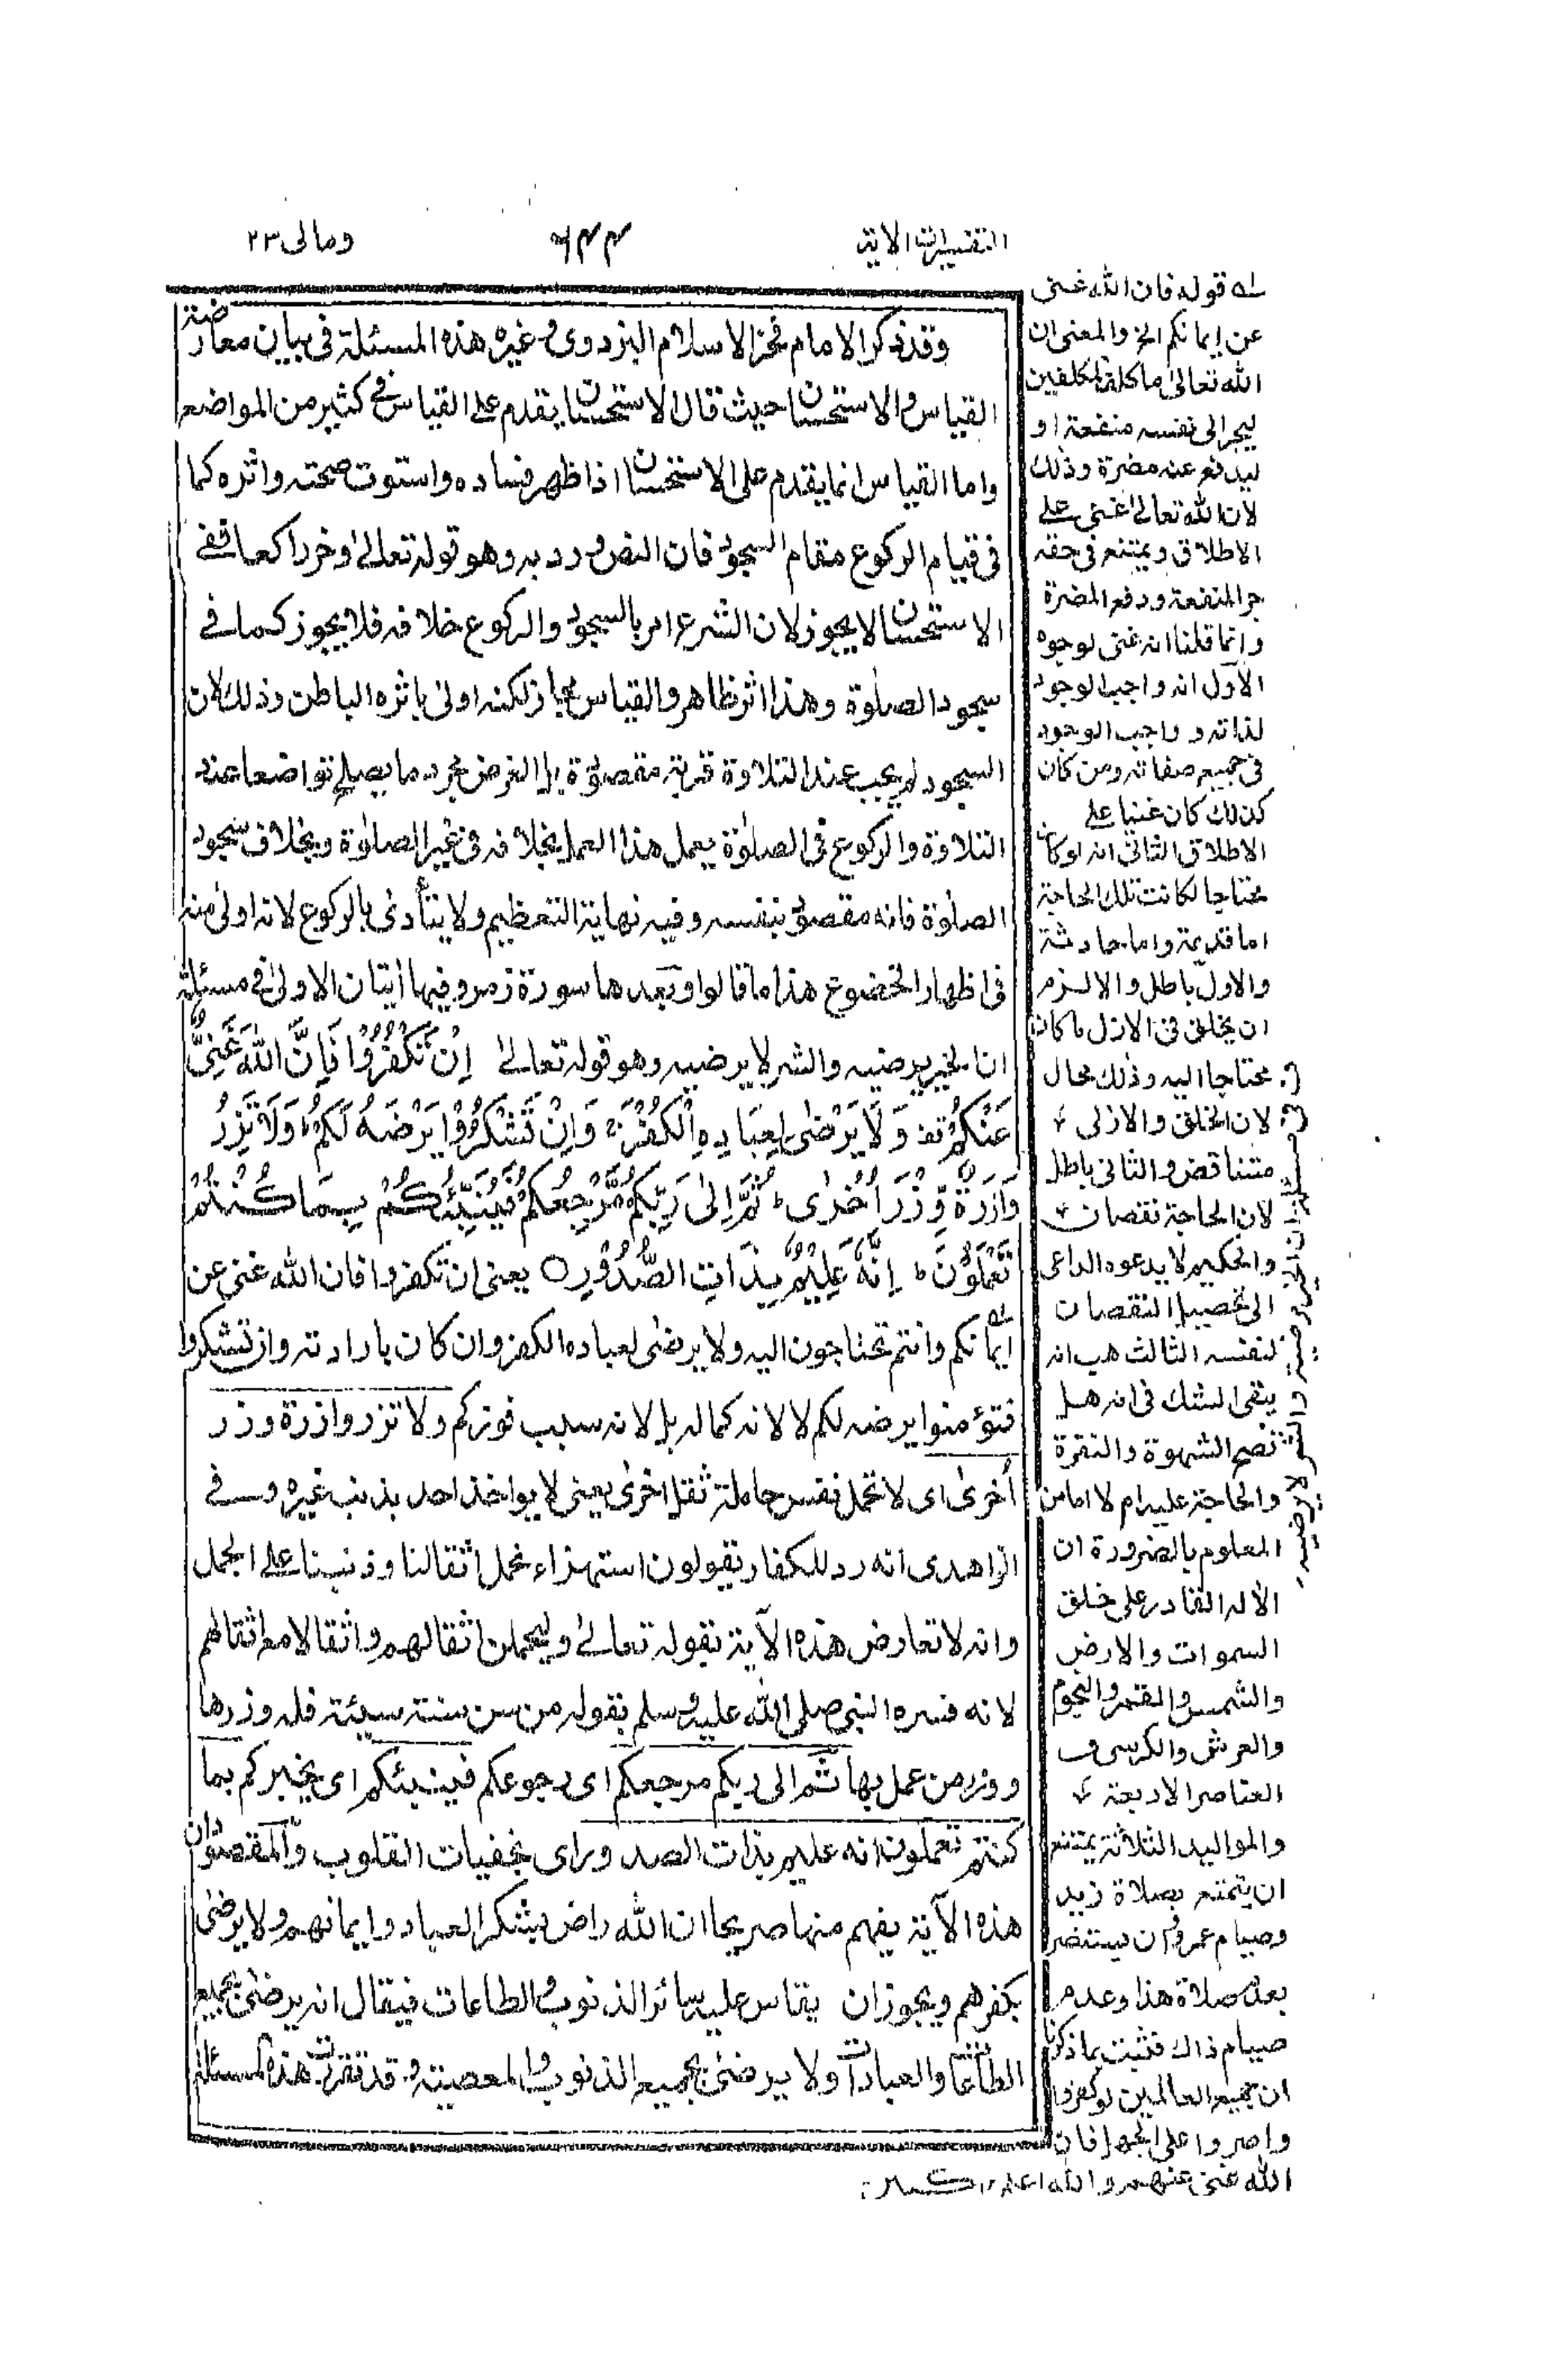 التفسيرات الاية
٦٤٤
ومالى ٢٣
وقد ذكر الامام فخر الاسلام البزدوى وغيره هذه المسئلة فى بيان معارضة
القياس والاستحسان حيث قال الاستحسان يقدم على القياس فى كثير من المواضع
واما القياس انما يقدم على الاستحسان اذا ظهر فساده واستوت صحته واثره كما
فى قيام الركوع مقام السجود فان النص ورد به وهو قوله تعالى وخر راكعا ففى
الاستحسان لا يجوز لان الشرع امر بالسجود والركوع خلافه فلا يجوز كما فى
سجود الصلوة وهذا اثر ظاهر والقياس مجاز لكنه اولى باثره الباطن وذلك لان
السجود لم يجب عند التلاوة قربة مقصودة بل الغرض مجرد ما يصلح تواضعا عند
التلاوة والركوع فى الصلوة يعمل هذا العمل بخلافه فى غير الصلوة وبخلاف سجود
الصلوة فانه مقصود بنفسه وفيه نهاية التعظيم ولا يتأدى بالركوع لانه اولى منه
فى اظهار الخضوع هذا ما قالوا وبعدها سورة زمر وفيها أيتان الاولى فى مسئلة
ان الخير يرضيه والشر لا يرضيه وهو قوله تعالى اِنْ تَكْفُرُوْا فَاِنَّ اللّٰهَ غَنِىٌّ
عَنْكُمْ قف وَلَا يَرْضٰى لِعِبَادِهِ الْكُفْرَ ج وَاِنْ تَشْكُرُوْا يَرْضَهُ لَكُمْ ط وَلَا تَزِرُ
وَازِرَةٌ وِّزْرَ اُخْرٰى ط ثُمَّ اِلٰى رَبِّكُمْ مَّرْجِعُكُمْ فَيُنَبِّئُكُمْ بِمَا كُنْتُمْ
تَعْمَلُوْنَ ط اِنَّهٗ عَلِيْمٌۢ بِذَاتِ الصُّدُوْرِ ○ يعنى ان تكفروا فان الله غنى عن
ايمانكم وانتم تحتاجون اليه ولا يرضى لعباده الكفر وان كان بارادته وان تشكروا
فتؤمنوا يرضه لكم لا لانه كماله بل لانه سبب فوزكم ولا تزر وازرة وزر
أخرى اى لا تحمل نفس حاملة ثقل اخرى يعنى لا يواخذ احد بذنب غيره وفى
الزاهدى انه رد للكفار يقولون استهزاء نحمل اثقالنا وذنبنا على الجمل
وانه لا تعارض هذه الآية بقوله تعالى وليحملن اثقالهم واثقالا مع اثقالهم
لانه فسره النبى صلى الله عليه وسلم بقوله من سن سنة سيئة فله وزرها
ووزر من عمل بها ثم الى ربكم مرجعكم اى رجوعكم فينبئكم اى يخبركم بما
كنتم تعملون انه عليم بذات الصدور اى بخفيات القلوب والمقصود ان
هذه الآية يفهم منها صريحا ان الله راض بشكر العباد وايمانهم ولا يرضى
بكفرهم ويجوز ان يقاس عليه سائر الذنوب والطاعات فيقال انه يرضى بجميع
الطاعات والعبادات ولا يرضى بجميع الذنوب والمعصية وقد تقررت هذه المسئلة
له قوله فان الله غنى
عن ايمانكم الخ والمعنى ان
الله تعالى ما كلف المكلفين
ليجر الى نفسه منفعة او
ليدفع عنه مضرة وذلك
لان الله تعالى غنى على
الاطلاق ويمتنع فى حقه
جر المنفعة ودفع المضرة
وانما قلنا انه غنى لوجوه
الاول انه واجب الوجود
لذاته و واجب الوجود
فى جميع صفاته ومن كان
كذلك كان غنيا على
الاطلاق الثانى انه لو كان
محتاجا لكانت تلك الحاجة
اما قديمة واما حادثة
والاول باطل والا لزم
ان يخلق فى الازل ما كان
محتاجا اليه وذلك محال
لان الخلق والازلى
متناقض والثانى باطل
لان الحاجة نقصان
والحكيم لا يدعوه الداعى
الى تحصيل النقصان
لنفسه الثالث هب انه
يبقى الشك فى انه هل
تصح الشهوة والنفرة
والحاجة عليه ام لا اما من
المعلوم بالضرورة ان
الاله القادر على خلق
السموات والارض
والشمس والقمر والنجوم
والعرش والكرسى و
العناصر الاربعة
والمواليد الثلاثة يمتنع
ان ينتفع بصلاة زيد
وصيام عمرو وان يستضر
بعدم صلاة هذا وعدم
صيام ذاك فثبت بما ذكرنا
ان جميع العالمين لو كفروا
واصروا على الجهل فان
الله غنى عنهم والله اعلم ١٢ كبير